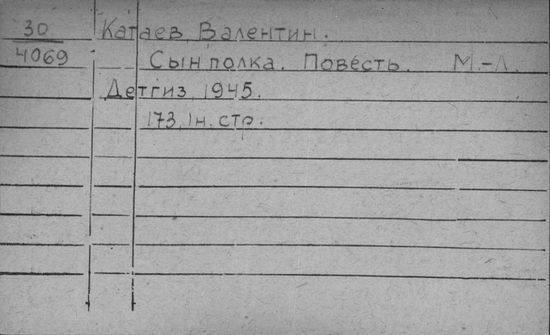 30 Катаев, Валентин.
4069 Сын полка. Повесть. М.-Л.
Детгиз, 1945.
173, 1н. стр.